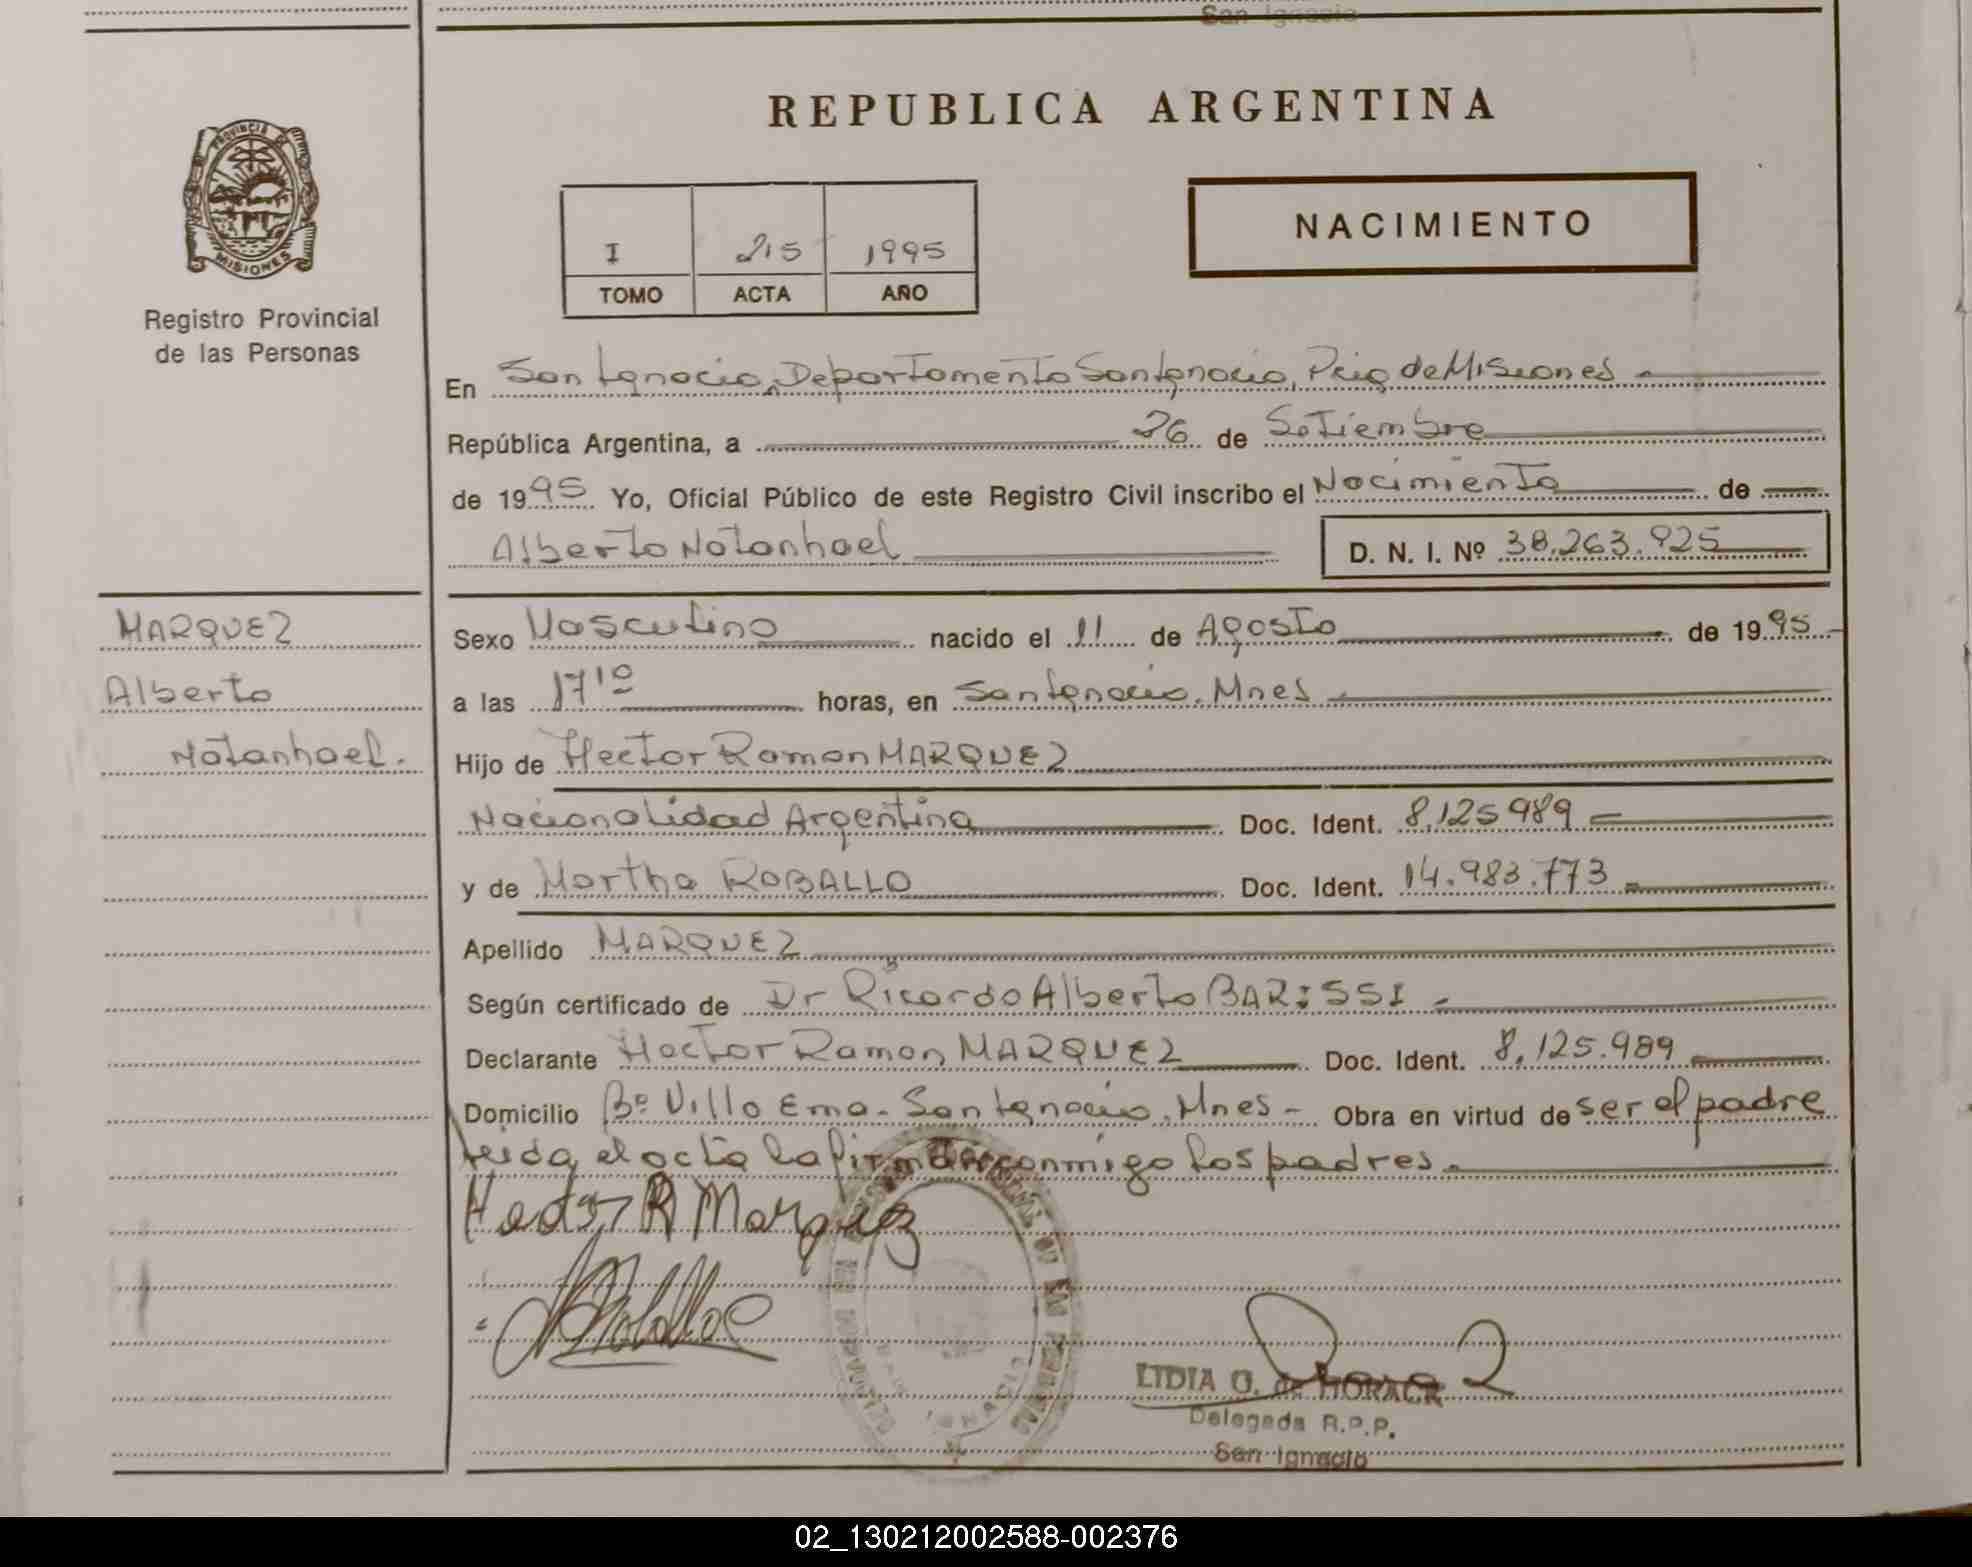 San Ignacio
PROVINCIA DE
MISIONES
Registro Provincial
de las Personas
REPUBLICA ARGENTINA
NACIMIENTO
I 215 1995
TOMO ACTA AÑO
En San Ignacio, Departamento San Ignacio, Pcia de Misiones
República Argentina, a 26 de Setiembre
de 1995 Yo, Oficial Público de este Registro Civil inscribo el Nacimiento de
Alberto Natanhael D. N. I. Nº 38.263.925
MARQUEZ
Alberto
Natanhael.
Sexo Masculino nacido el 11 de Agosto de 1995
a las 17 10 horas, en San Ignacio. Mnes
Hijo de Hector Ramon MARQUEZ
Nacionalidad Argentina Doc. Ident. 8.125989
y de Martha ROBALLO Doc. Ident. 14.983.773
Apellido MARQUEZ
Según certificado de Dr Ricardo Alberto BARiSSI
Declarante Hector Ramon MARQUEZ Doc. Ident. 8.125.989
Domicilio Bº Villa Ema - San Ignacio. Mnes - Obra en virtud de ser el padre
leida el acta la firman conmigo los padres.
Hector R Marquez
LIDIA O. de MORACK
Delegada R.P.P.
San Ignacio
02_130212002588-002376